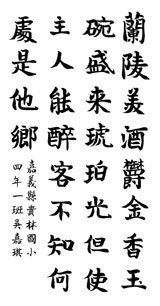 蘭陵美酒鬱金香玉
碗盛来琥珀光但使
主人能醉客不知何
處是他鄉
嘉義縣貴林國小
四年一班吳嘉琪